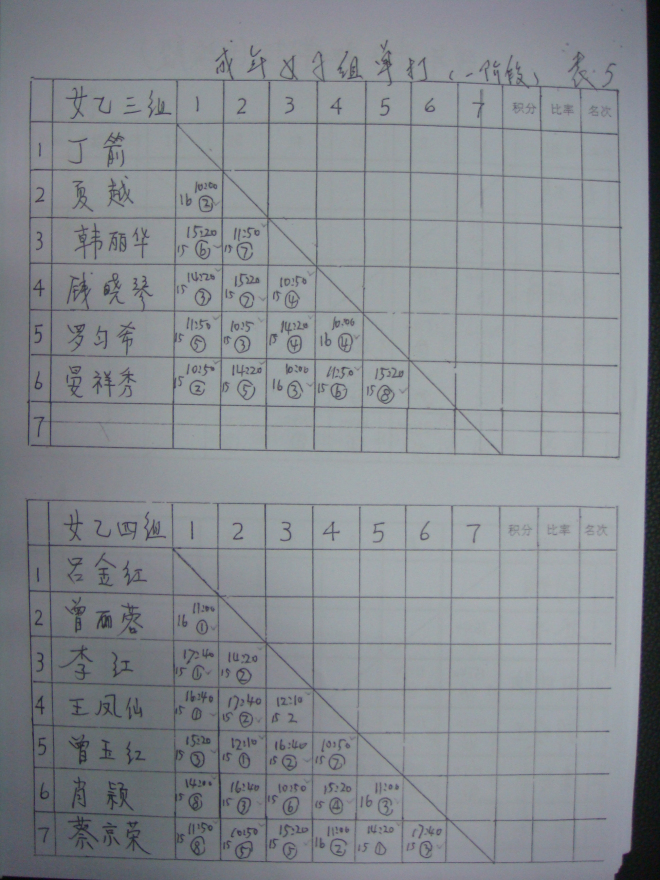 成年女子组单打(一阶段) 表5
女乙三组 1 2 3 4 5 6 7 积分 比率 名次
1 丁箭
2 夏越 16 10:00 ②
3 韩丽华 15 15:20 ⑥ 15 11:50 ⑦
4 钱晓琴 15 14:20 ③ 15 15:20 ⑦ 15 10:50 ④
5 罗匀希 15 11:50 ⑤ 15 10:5 ③ 15 14:20 ④ 16 10:00 ④
6 晏祥秀 15 10:50 ② 15 14:20 ⑤ 16 10:00 ③ 15 11:50 ⑥ 15 15:20 ⑧
7
女乙四组 1 2 3 4 5 6 7 积分 比率 名次
1 吕金红
2 曾丽蓉 16 11:00 ①
3 李红 15 17:40 ① 15 14:20 ②
4 王凤仙 15 16:40 ① 15 17:40 ② 15 12:10 2
5 曾玉红 15 15:20 ③ 15 12:10 ① 15 16:40 ② 15 10:50 ⑦
6 肖颖 15 14:00 ⑧ 15 16:40 ③ 15 10:50 ⑥ 15 15:20 ④ 16 11:00 ③
7 蔡京荣 15 11:50 ⑧ 15 10:50 ⑤ 15 15:20 ⑤ 16 11:00 ② 15 14:20 ① 15 17:40